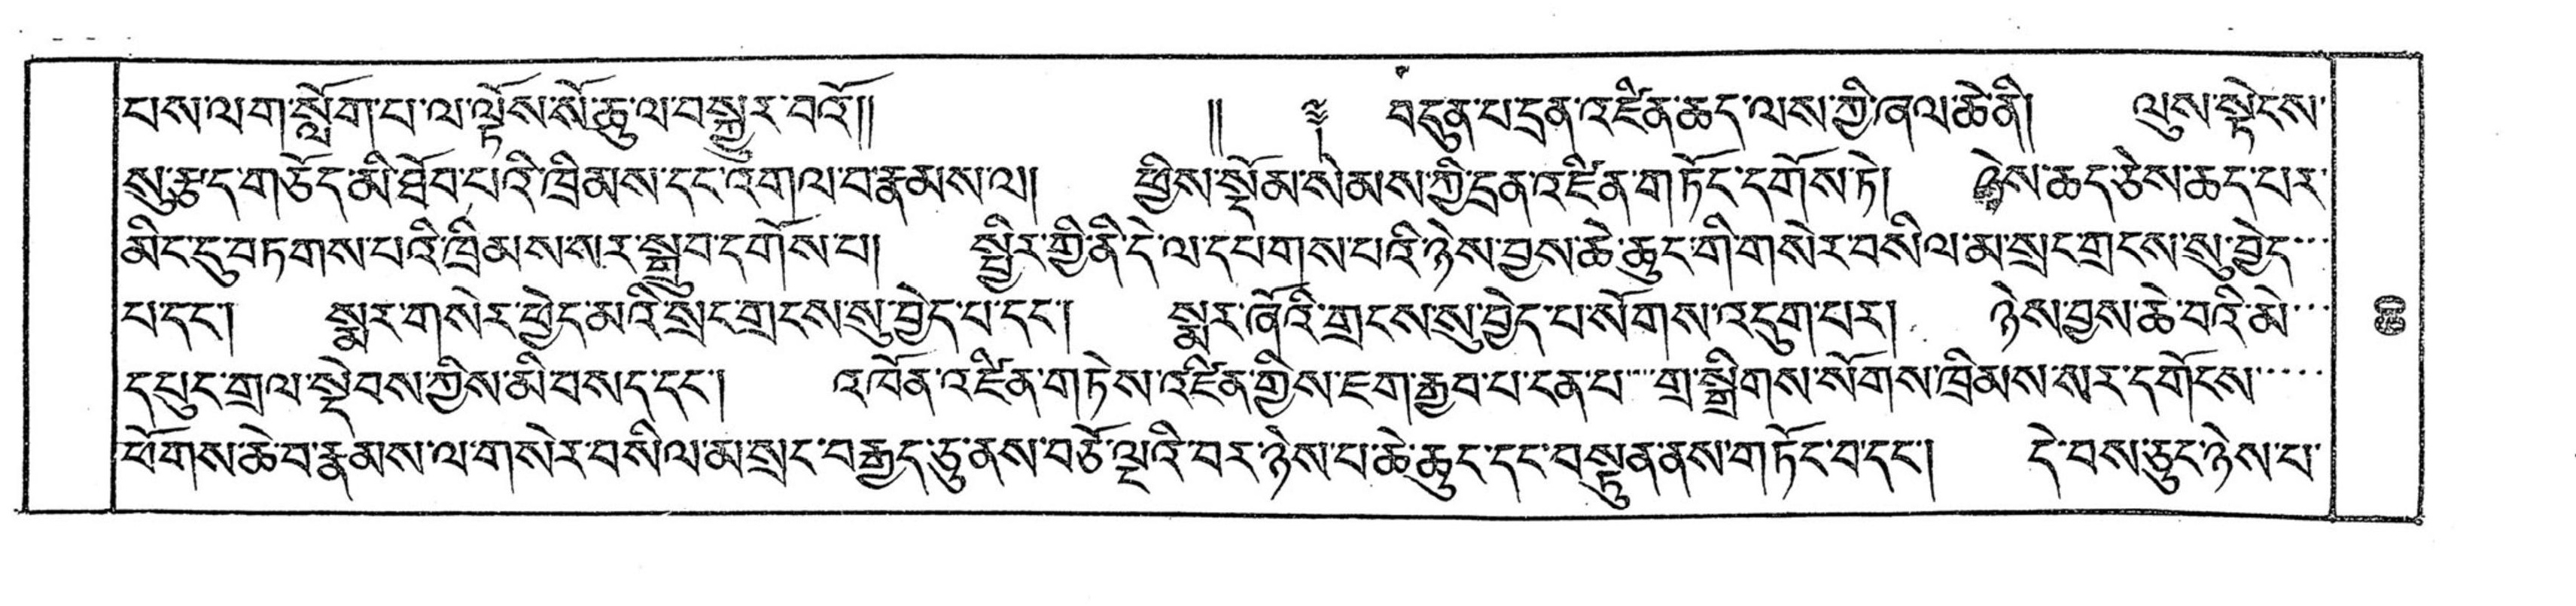 པས་ལག་སློག་པ་ལ་ལྟོས་སོ་ཆུ་ལ་བསྐྱུར་བའོ།། །། ༈ བདུན་པ་དྲན་འཛིན་ཆད་ལས་ཀྱི་ཞལ་ཆེ་ནི། ལུས་སྟེངས་
སུ་རྩད་གཅོད་མི་ཐོབ་པའི་ཁྲིམས་དང་འགལ་བ་རྣམས་ལ། ཕྱིས་སྡོམ་སེམས་ཀྱི་དྲན་འཛིན་གཏོང་དགོས་ཏེ། ཉེས་ཆད་ཅེས་ཆད་པར་
མིང་དུ་བཏགས་པའི་ཁྲིམས་སར་སྒྲུབ་དགོས་པ། སྤྱིར་གྱི་ནི་དེ་ལ་དཔགས་པའི་ཉེས་བྱས་ཆེ་ཆུང་གི་གསེར་བསིལ་མ་སྲང་གྲངས་སུ་བྱེད་
པ་དང་། སྨར་གསེར་ཕྱེད་མའི་སྲང་གྲངས་སུ་བྱེད་པ་དང་། སྨར་ཞོའི་གྲངས་སུ་བྱེད་པ་སོགས་འདུག་པར། ཉེས་བྱས་ཆེ་བའི་མེ་
དཔུང་གྲལ་སྡེབས་ཀྱིས་མི་བསད་དང་། འཁོན་འཛིན་གཏེས་འཛིན་གྱིས་ཇག་རྒྱབ་པ་ངན་པ་གྲ་སྒྲིགས་སོགས་ཁྲིམས་སར་དགོངས་
ཕོགས་ཆེ་བ་རྣམས་ལ་གསེར་བསིལ་མ་སྲང་བརྒྱད་ཅུ་ནས་བཅོ་ལྔའི་བར་ཉེས་པ་ཆེ་ཆུང་དང་བསྟུན་ནས་གཏོང་བ་དང་། དེ་བས་ཅུང་ཉེས་པ་